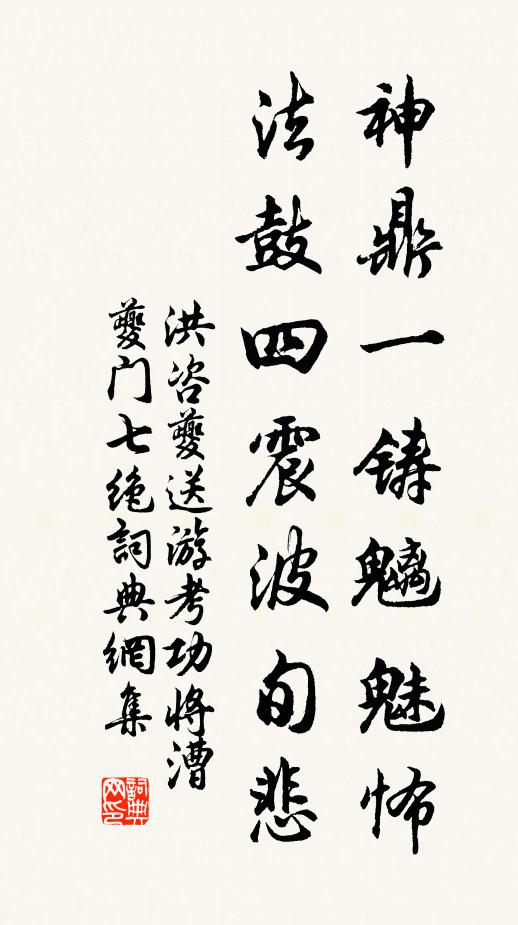 神鼎一鑄魑魅怖
法鼓四震波旬悲
洪咨夔送游考功將漕
夔門七絶詞典網集
詞典
网印